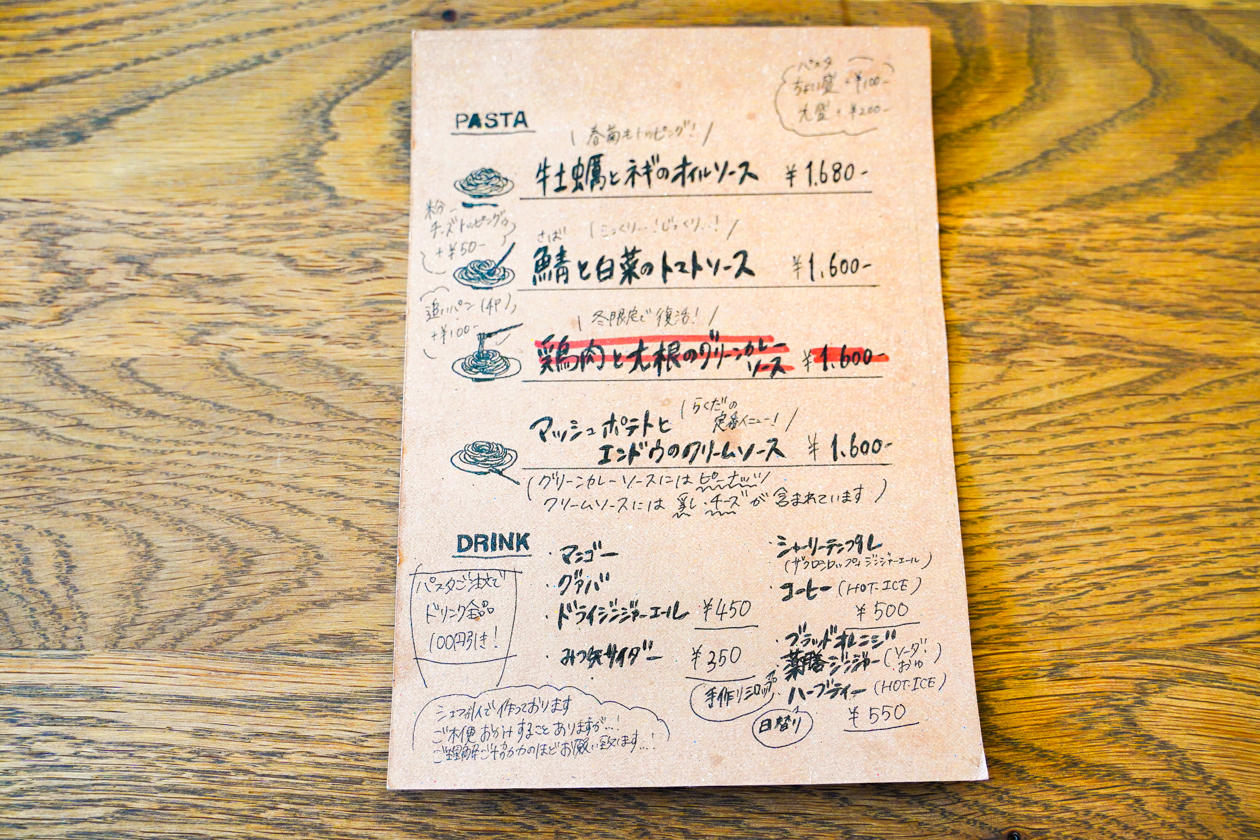 パスタ
ちょい盛 +¥100-
大盛 +¥200-
PASTA
春菊もトッピング!
牡蠣とネギのオイルソース ¥1,680-
粉
チーズトッピング
+¥50-
さば こっくり..!じっくり..!
鯖と白菜のトマトソース ¥1,600-
追いパン(4P)
+¥100-
冬限定で復活!
鶏肉と大根のグリーンカレー
ソース ¥1,600-
らくだの
定番メニュー!
マッシュポテトと
エンドウのクリームソース ¥1,600-
(グリーンカレーソースにはピーナッツ
クリームソースには乳・チーズが含まれています)
DRINK
パスタご注文で
ドリンク全品
100円引き!
・マンゴー
・グァバ
・ドライジンジャーエール ¥450
・みつ矢サイダー ¥350
・シャーリーテンプル
(ザクロシロップ&ジンジャーエール)
・コーヒー(HOT・ICE)
¥500
・ブラッドオレンジ
・薬膳ジンジャー(ソーダ・
おゆ)
手作りシロップ
・ハーブティー(HOT・ICE)
日替り ¥550
シェフ1人で作っております
ご不便おかけすることありますが..!
ご理解ご協力のほどお願い致します..!